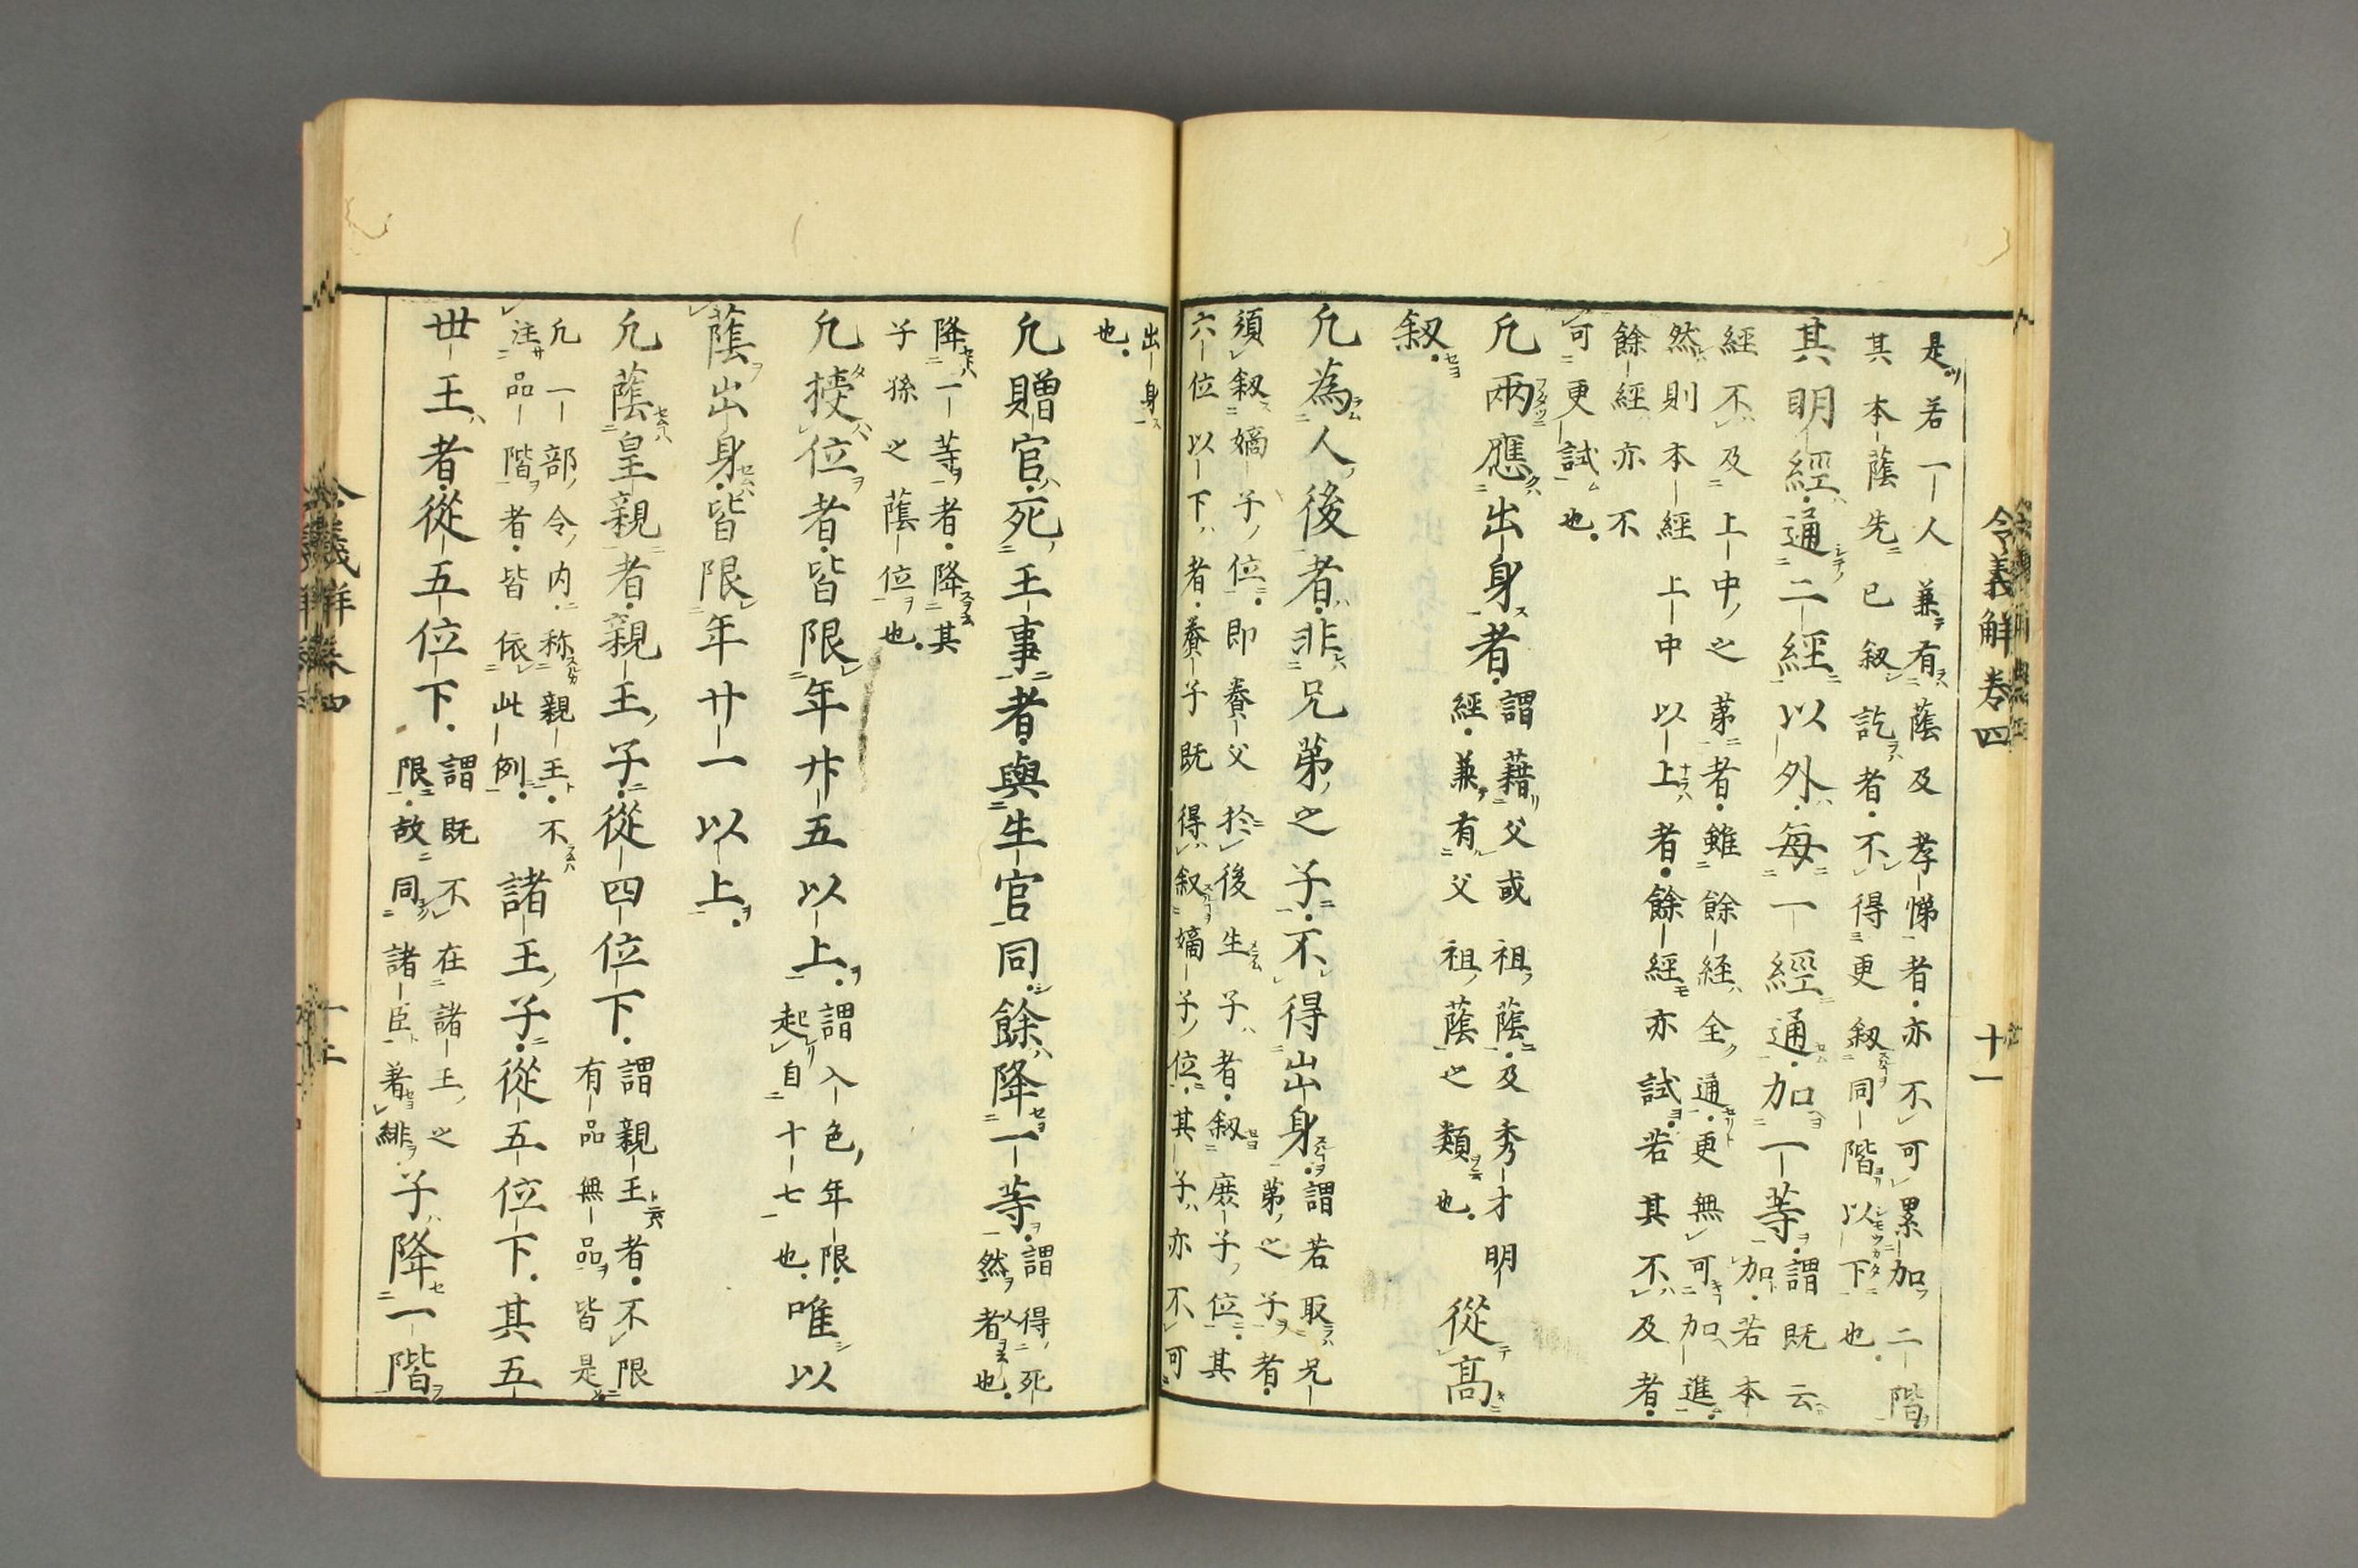 令義解卷四 十一
是若一人兼有蔭及孝悌者亦不可累加二階
其本蔭先已叙訖者不得更叙同階以下也
其明經通二經以外每一經通加一等謂既云
加若本
經不及上中之第者雖餘經全通更無可加進
然則本經上中以上者餘經亦試若其不及者
餘經亦不
可更試也
凢兩應出身者謂藉父或祖蔭及秀才明
經兼有父祖蔭之類也從高
叙
凢為人後者非兄弟之子不得出身謂若取兄
弟之子者
須叙嫡子位即養父於後生子者叙庶子位其
六位以下者養子既得叙嫡子位其子亦不可
出身
也
凢贈官死王事者與生官同餘降一等謂得死
然者也
降一等者降其
子孫之蔭位也
凢授位者皆限年廿五以上謂入色年限
起自十七也唯以
蔭出身皆限年廿一以上
凢蔭皇親者親王子從四位下謂親王者不限
有品無品皆是
凢一部令内称親王不
注品階者皆依此例諸王子從五位下其五
丗王者從五位下謂既不在諸王之
限故同諸臣著緋子降一階
令義解卷四